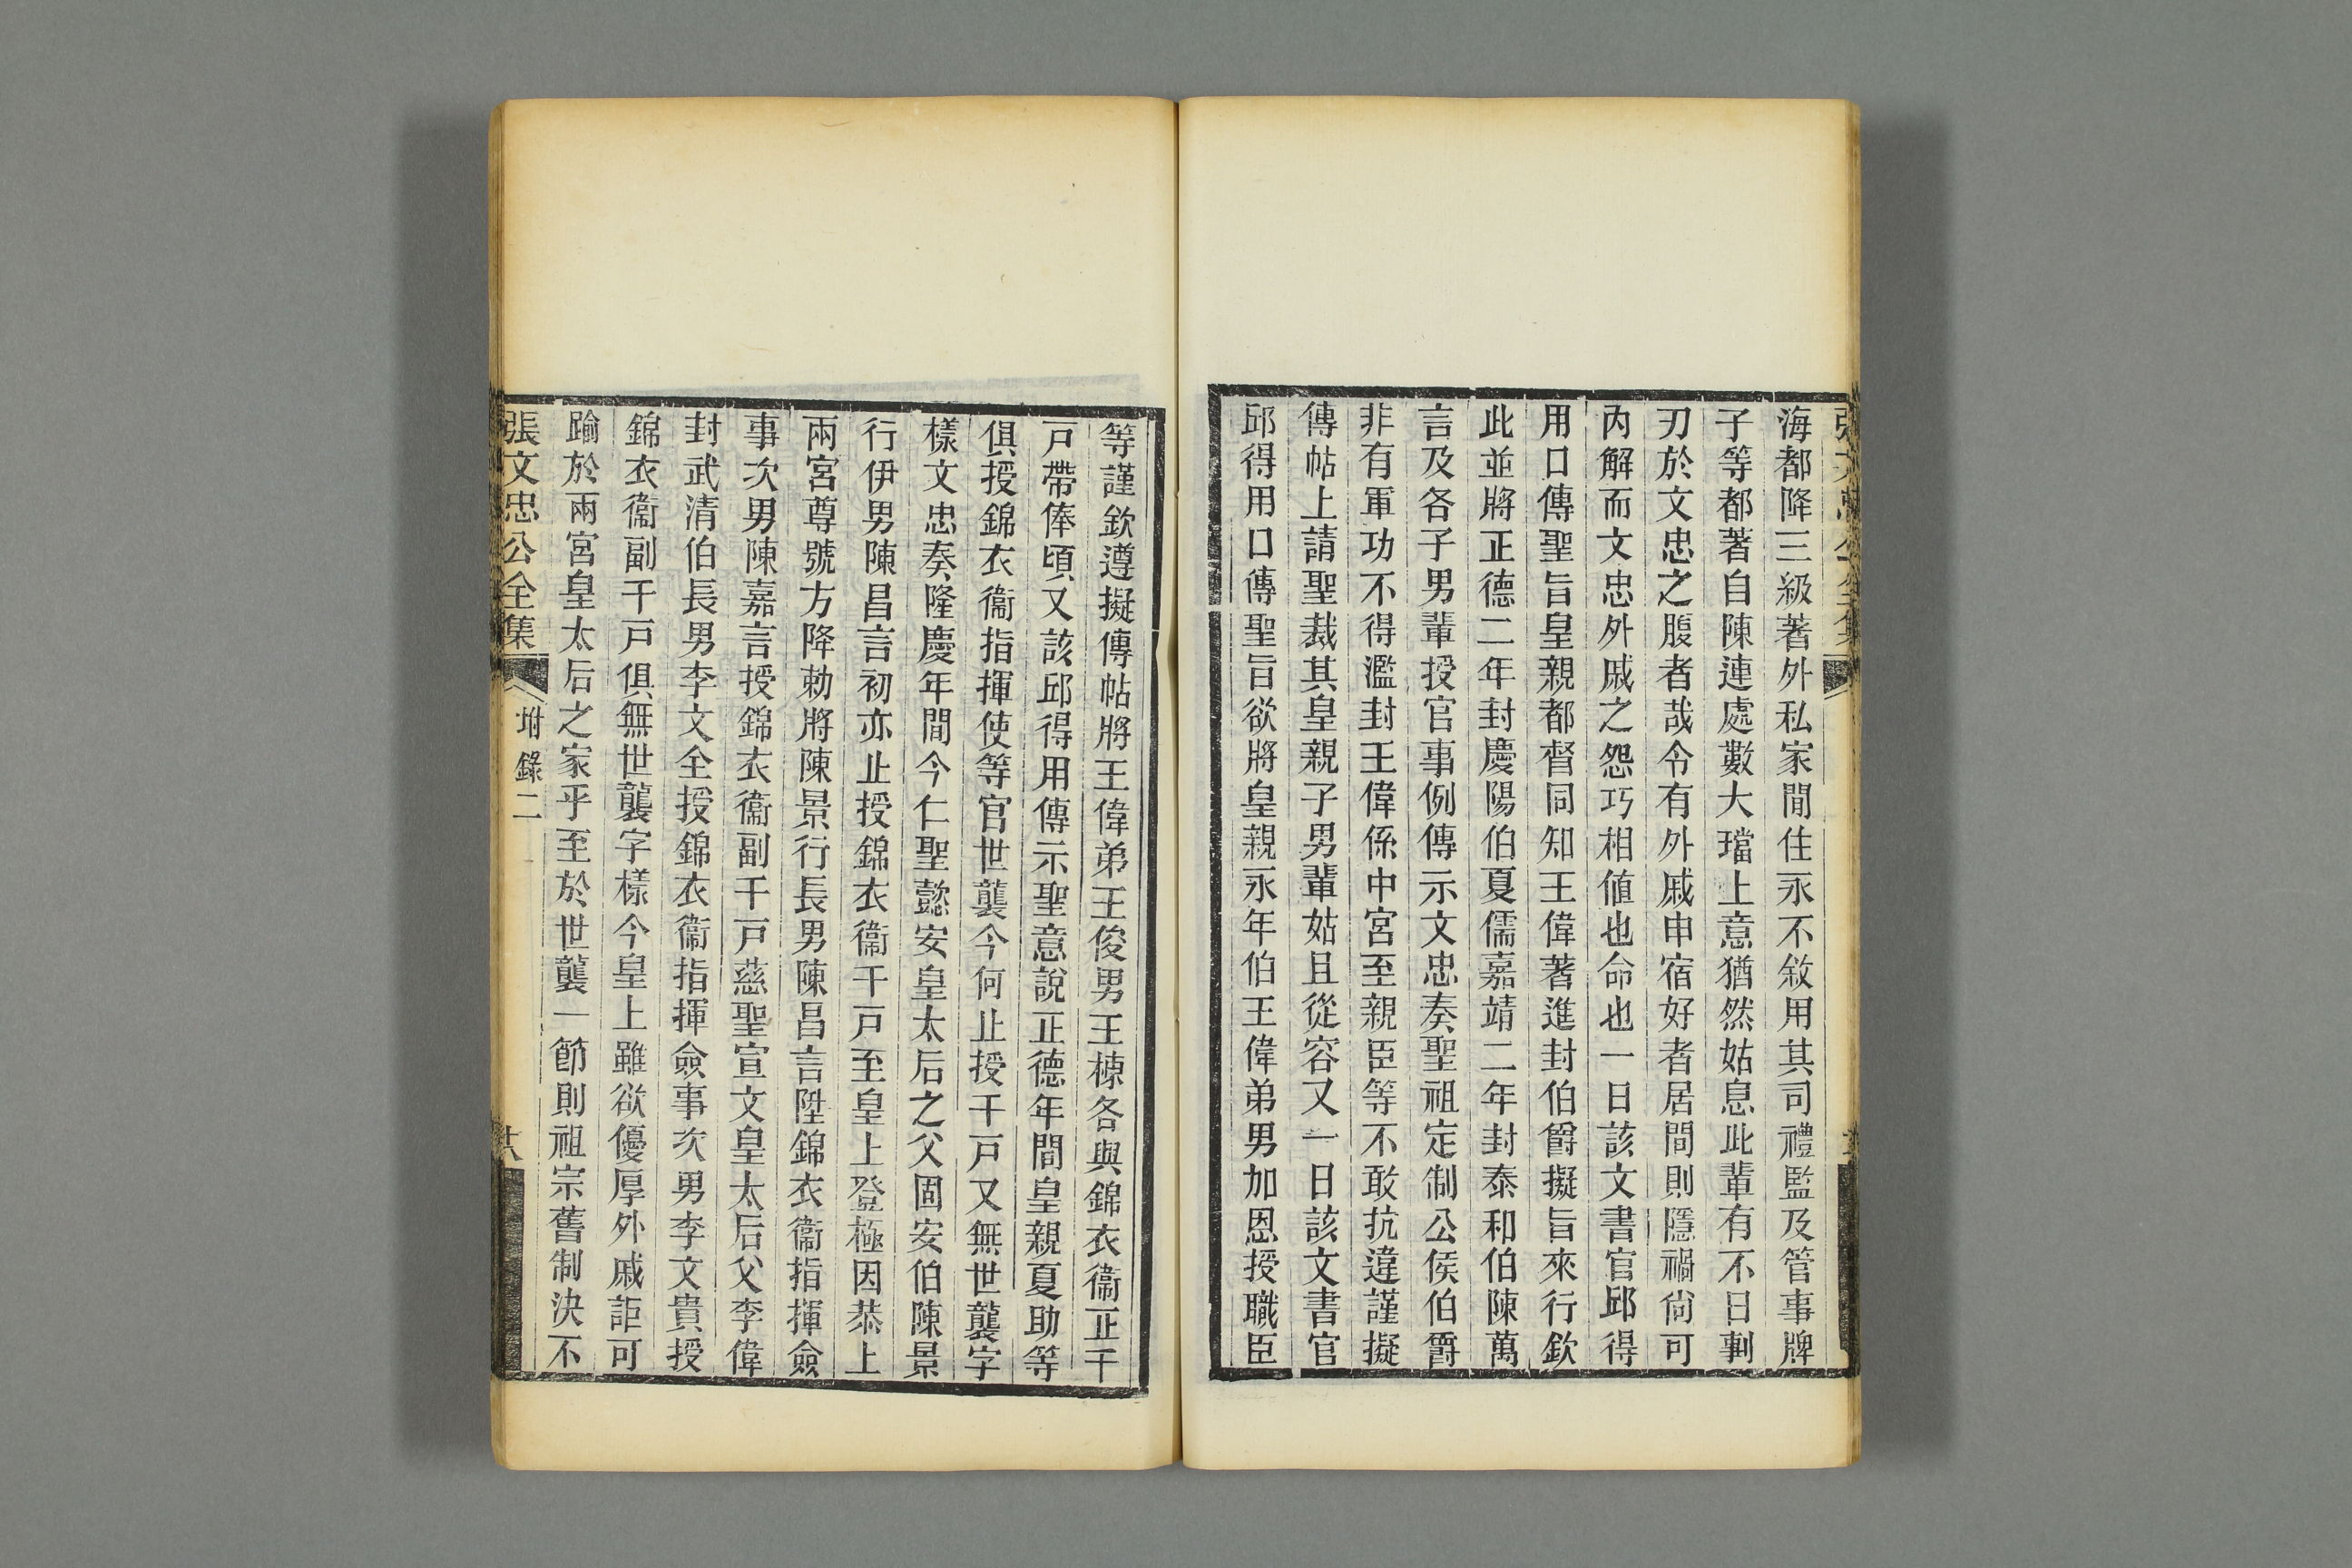 海都降三級著外私家閒住永不敘用其司禮監及管事牌
子等都著自陳連處數大璫上意猶然姑息此輩有不日剚
刃於文忠之腹者哉令有外戚申宿好者居間則隱禍尙可
內解而文忠外戚之怨巧相値也命也一日該文書官邱得
用口傳聖旨皇親都督同知王偉著進封伯爵擬旨來行欽
此並將正德二年封慶陽伯夏儒嘉靖二年封泰和伯陳萬
言及各子男輩授官事例傳示文忠奏聖祖定制公侯伯爵
非有軍功不得濫封王偉係中宮至親臣等不敢抗違謹擬
傳帖上請聖裁其皇親子男輩姑且從容又一日該文書官
邱得用口傳聖旨欲將皇親永年伯王偉弟男加恩授職臣
等謹欽遵擬傳帖將王偉弟王俊男王棟各與錦衣衞正千
戶帶俸頃又該邱得用傳示聖意說正德年間皇親夏助等
俱授錦衣衞指揮使等官世襲今何止授千戶又無世襲字
樣文忠奏隆慶年間今仁聖懿安皇太后之父固安伯陳景
行伊男陳昌言初亦止授錦衣衞千戶至皇上登極因恭上
兩宮尊號方降勅將陳景行長男陳昌言陞錦衣衞指揮僉
事次男陳嘉言授錦衣衞副千戶慈聖宣文皇太后父李偉
封武清伯長男李文全授錦衣衞指揮僉事次男李文貴授
錦衣衞副千戶俱無世襲字樣今皇上雖欲優厚外戚詎可
踰於兩宮皇太后之家乎至於世襲一節則祖宗舊制決不
張文忠公全集 坿錄二 十六